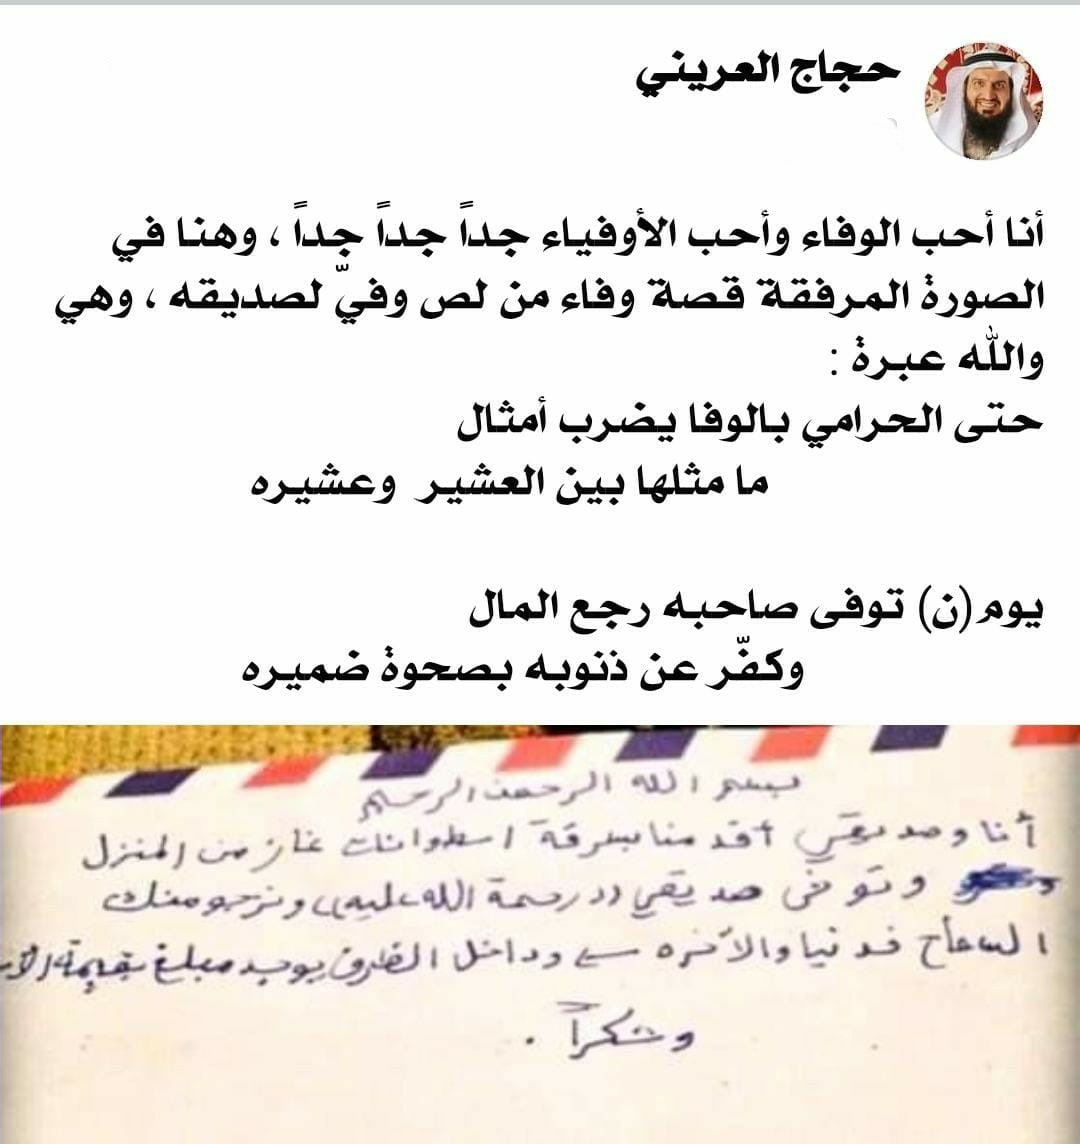 حجاج العريني
أنا أحب الوفاء وأحب الأوفياء جداً جداً جداً ، وهنا في
الصورة المرفقة قصة وفاء من لص وفيّ لصديقه ، وهي
والله عبرة :
حتى الحرامي بالوفا يضرب أمثال
ما مثلها بين العشير وعشيره
يوم(ن) توفى صاحبه رجع المال
وكفّر عن ذنوبه بصحوة ضميره
بسم الله الرحمن الرحيم
أنا وصديقي أقدمنا بسرقة اسطوانات غاز من المنزل
وتوفي صديقي ((رحمة الله عليه)) ونرجو منك
السماح فدنيا والأخره وداخل الظرف يوجد مبلغ بقيمة
وشكراً .